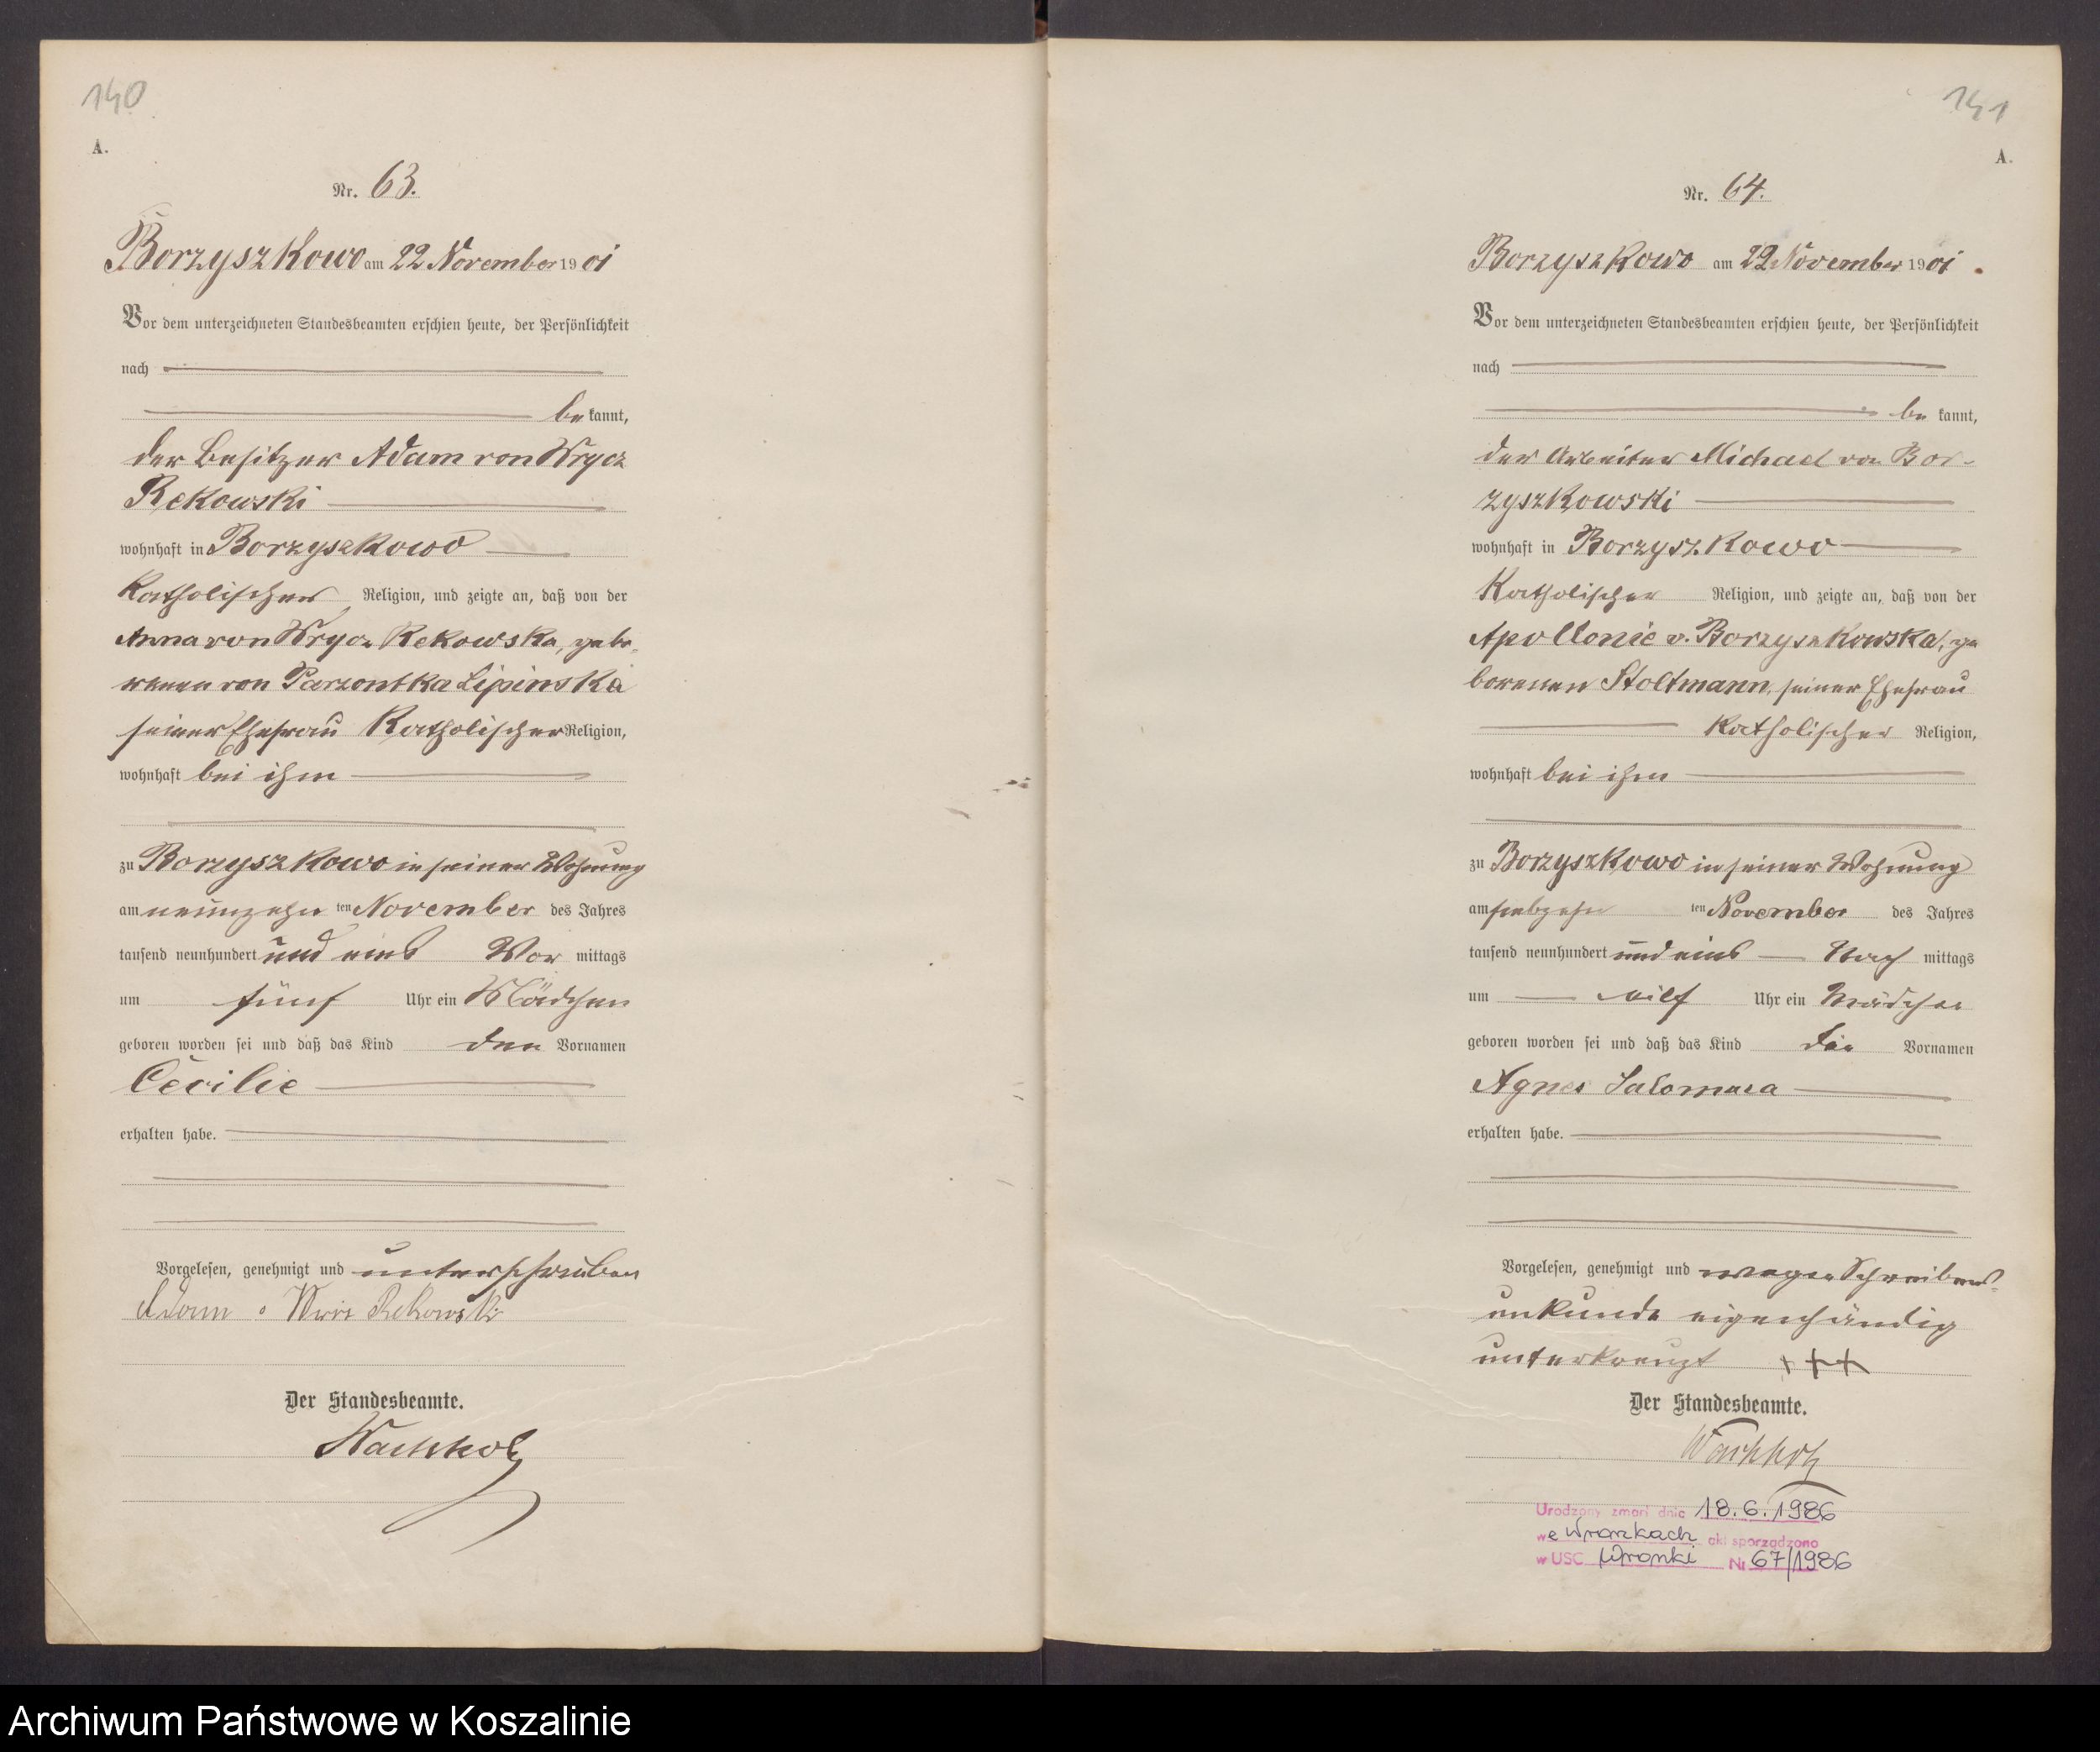 140
A.
Nr. 63.
Borzyszkowo am 22 November 1901
Vor dem unterzeichneten Standesbeamten erschien heute, der Persönlichkeit
nach
bekannt,
der Besitzer Adam von Wrycz
Rekowski
wohnhaft in Borzyszkowo
Katholischer Religion, und zeigte an, daß von der
Anna von Wrycz Rekowska, gebo-
renen von Parzontka Lipinska
seiner Ehefrau Katholischer Religion,
wohnhaft bei ihm
zu Borzyszkowo in seiner Wohnung
am neunzehn ten November des Jahres
tausend neunhundert und eins Vor mittags
um fünf Uhr ein Mädchen
geboren worden sei und daß das Kind den Vornamen
Cecilie
erhalten habe.
Vorgelesen, genehmigt und unterschrieben
Adam Rekowski
Der Standesbeamte.
Wachholz
141
A.
Nr. 64.
Borzyszkowo am 22 November 1901.
Vor dem unterzeichneten Standesbeamten erschien heute, der Persönlichkeit
nach
bekannt,
der Arbeiter Michael von Bor-
zyszkowski
wohnhaft in Borzyszkowo
Katholischer Religion, und zeigte an, daß von der
Apollonie v. Borzyszkowska, ge
borenen Stoltmann, seiner Ehefrau
Katholischer Religion,
wohnhaft bei ihm
zu Borzyszkowo in seiner Wohnung
am siebzehn ten November des Jahres
tausend neunhundert und eins Nach mittags
um eilf Uhr ein Mädchen
geboren worden sei und daß das Kind die Vornamen
Agnes Salomea
erhalten habe.
Vorgelesen, genehmigt und wegen Schreibens-
unkunde eigenhändig
unterkreuzt +++
Der Standesbeamte.
Wachholz
Urodzony zmarł dnia 18.6.1986
we Wronkach akt sporządzono
w USC Wronki Nr 67/1986
Archiwum Państwowe w Koszalinie